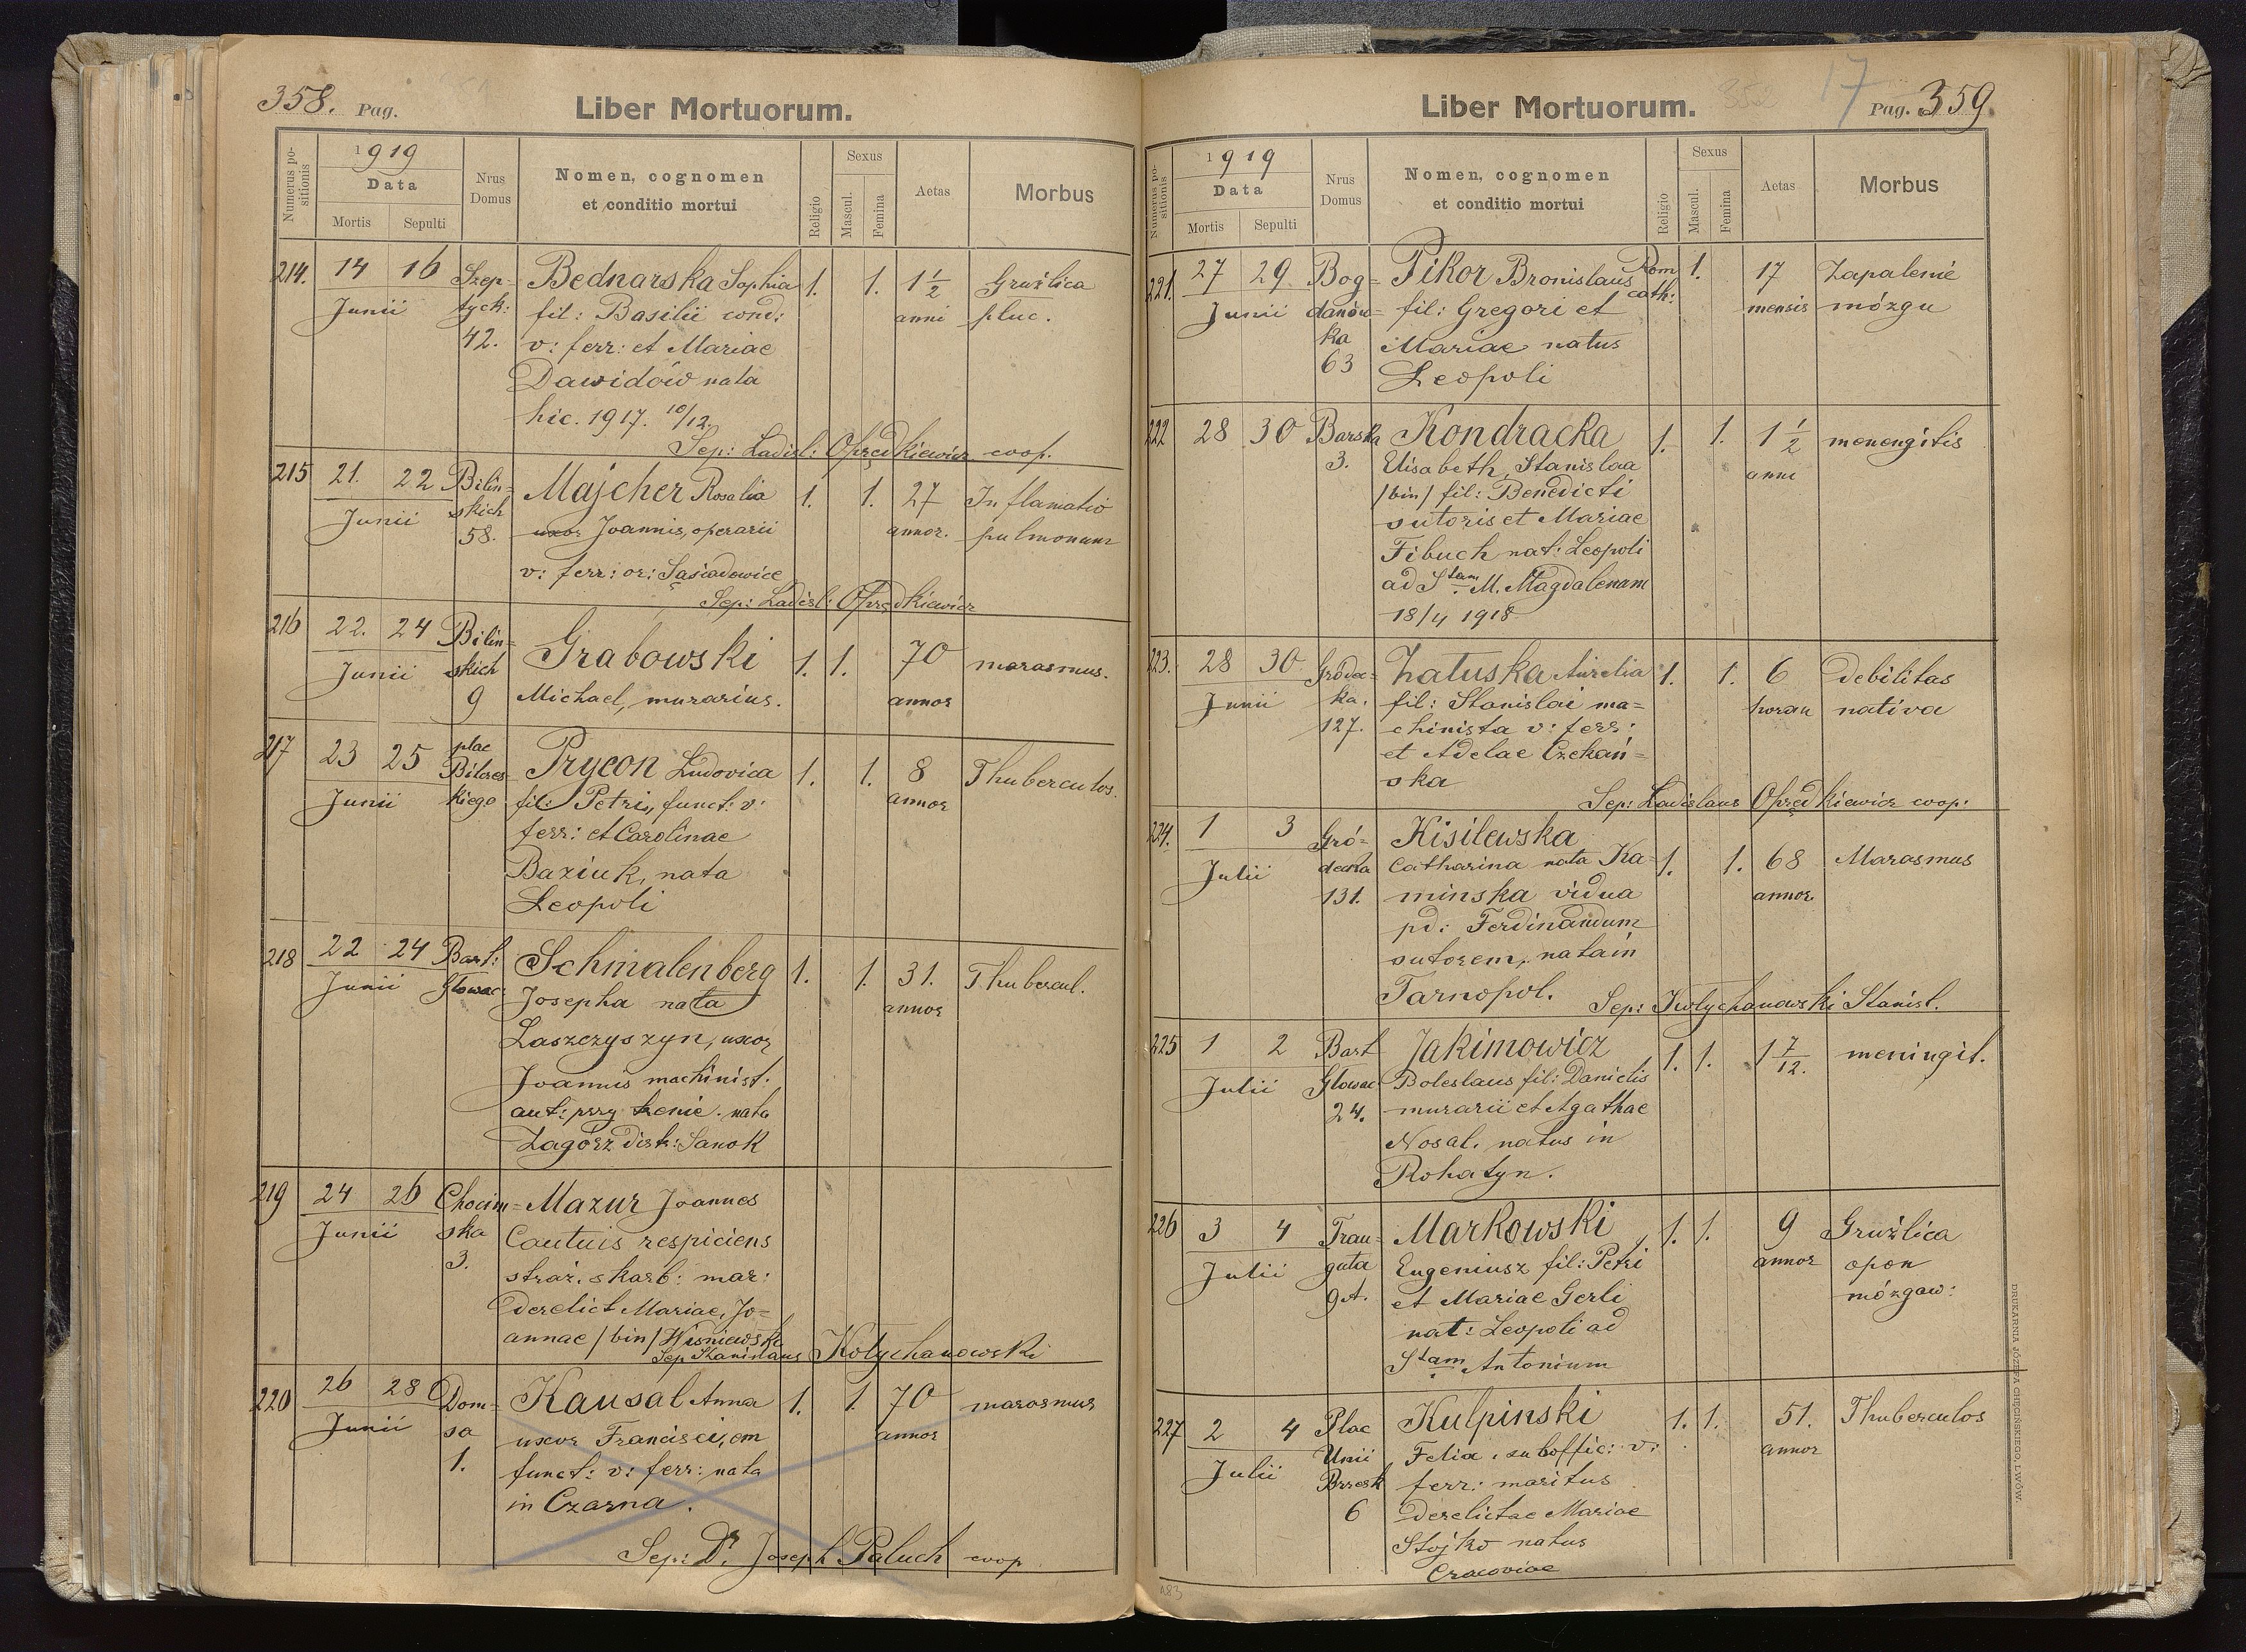 358. Pag.
Liber Mortuorum.
Numerus positionis
1919
Data
Mortis
Sepulti
Nrus Domus
Nomen, cognomen
et conditio mortui
Religio
Sexus
Mascul.
Femina
Aetas
Morbus
214. 14 16 Szep= Bednarska Sophia 1. 1. 1 1/2 Gruźlica
Junii tyck: fil: Basilii cond: anni płuc.
42. v: ferr: et Mariae
Dawidów nata
hic. 1917. 10/12.
Sep: Ladisl: Oprzędkiewicz coop.
215 21. 22 Bilin= Majcher Rosalia 1. 1. 27 Inflamatio
Junii skich uxor Joannis, operarii annor. pulmonum
58. v: ferr: or: Sąsiadowice
Sep: Ladisl: Oprzędkiewicz
216 22. 24 Bilin= Grabowski 1. 1. 70 marasmus.
Junii skich Michael, murarius. annor
9
217 23 25 plac Prycon Ludovica 1. 1. 8 Thuberculos.
Junii Bilczes= fil: Petri, funct: v: annor
kiego ferr: et Carolinae
Baziuk, nata
Leopoli
218 22 24 Bart: Schmalenberg 1. 1. 31. Thubercul.
Junii Głowac: Josepha nata annor
Laszczyszyn, uxor
Joannis machinist.
aut: przy trenie. nata
Zagórz distr: Sanok
219 24 26 Chocim= Mazur Joannes
Junii ska Cautuis respiciens
3. straż. skarb: mar:
derelict Mariae, Jo=
annae /bin/ Wiśniewska
Sep Stanislaus Kotychanowski
220 26 28 Dom= Kausal Anna 1. 1. 70 marasmus
Junii sa uxor Francisci, em annor
1. funct: v: ferr: nata
in Czarna.
Sep: Dr. Joseph Paluch coop
Liber Mortuorum.
352 17
Pag. 359
Numerus positionis
1919
Data
Mortis
Sepulti
Nrus Domus
Nomen, cognomen
et conditio mortui
Religio
Sexus
Mascul.
Femina
Aetas
Morbus
221. 27 29 Bog= Pikor Bronislaus Rom 1. 17 Zapalenie
Junii danów= fil: Gregori et cath: mensis mózgu
ka Mariae natus
63 Leopoli
222 28 30 Barska Kondracka 1. 1. 1 1/2 menengitis
3. Elisabeth, Stanislaa anni
/bin/ fil: Benedicti
sutoris et Mariae
Fibuch nat: Leopoli
ad Stam M. Magdalenam
18/4 1918
223. 28 30 Gródec= Załuska Aurelia 1. 1. 6 debilitas
Junii ka. fil: Stanislai ma= horau nativa
127. chinista v: ferr:
et Adelae Czekań=
ska
Sep: Ladislaus Oprzędkiewicz coop:
224. 1 3 Gró= Kisilewska
Julii decka Catharina nata Ka= 1. 1. 68 Marasmus
131. minska vidua annor
pd: Ferdinandum
sutorem, nata in
Tarnopol.
Sep: Kotychanowski Stanisl.
225 1 2 Bart Jakimowicz 1. 1. 1 7/12. meningit.
Julii Głowac Boleslaus fil: Danielis
24. murarii et Agathae
Nosal. natus in
Rohatyn.
226 3 4 Trau= Markowski 1. 1. 9 Gruźlica
Julii guta Eugeniusz fil: Petri annor opon
9A. et Mariae Gerli mózgow:
nat: Leopoli ad
Stam Antonium
227 2 4 Plac Kulpinski 1. 1. 51. Thuberculos
Julii Unii Felix, suboffic: v: annor
Brzesk ferr: maritus
6 derelictae Mariae
Stojko natus
Cracoviae
183
DRUKARNIA JÓZEFA CHĘCIŃSKIEGO, LWÓW.